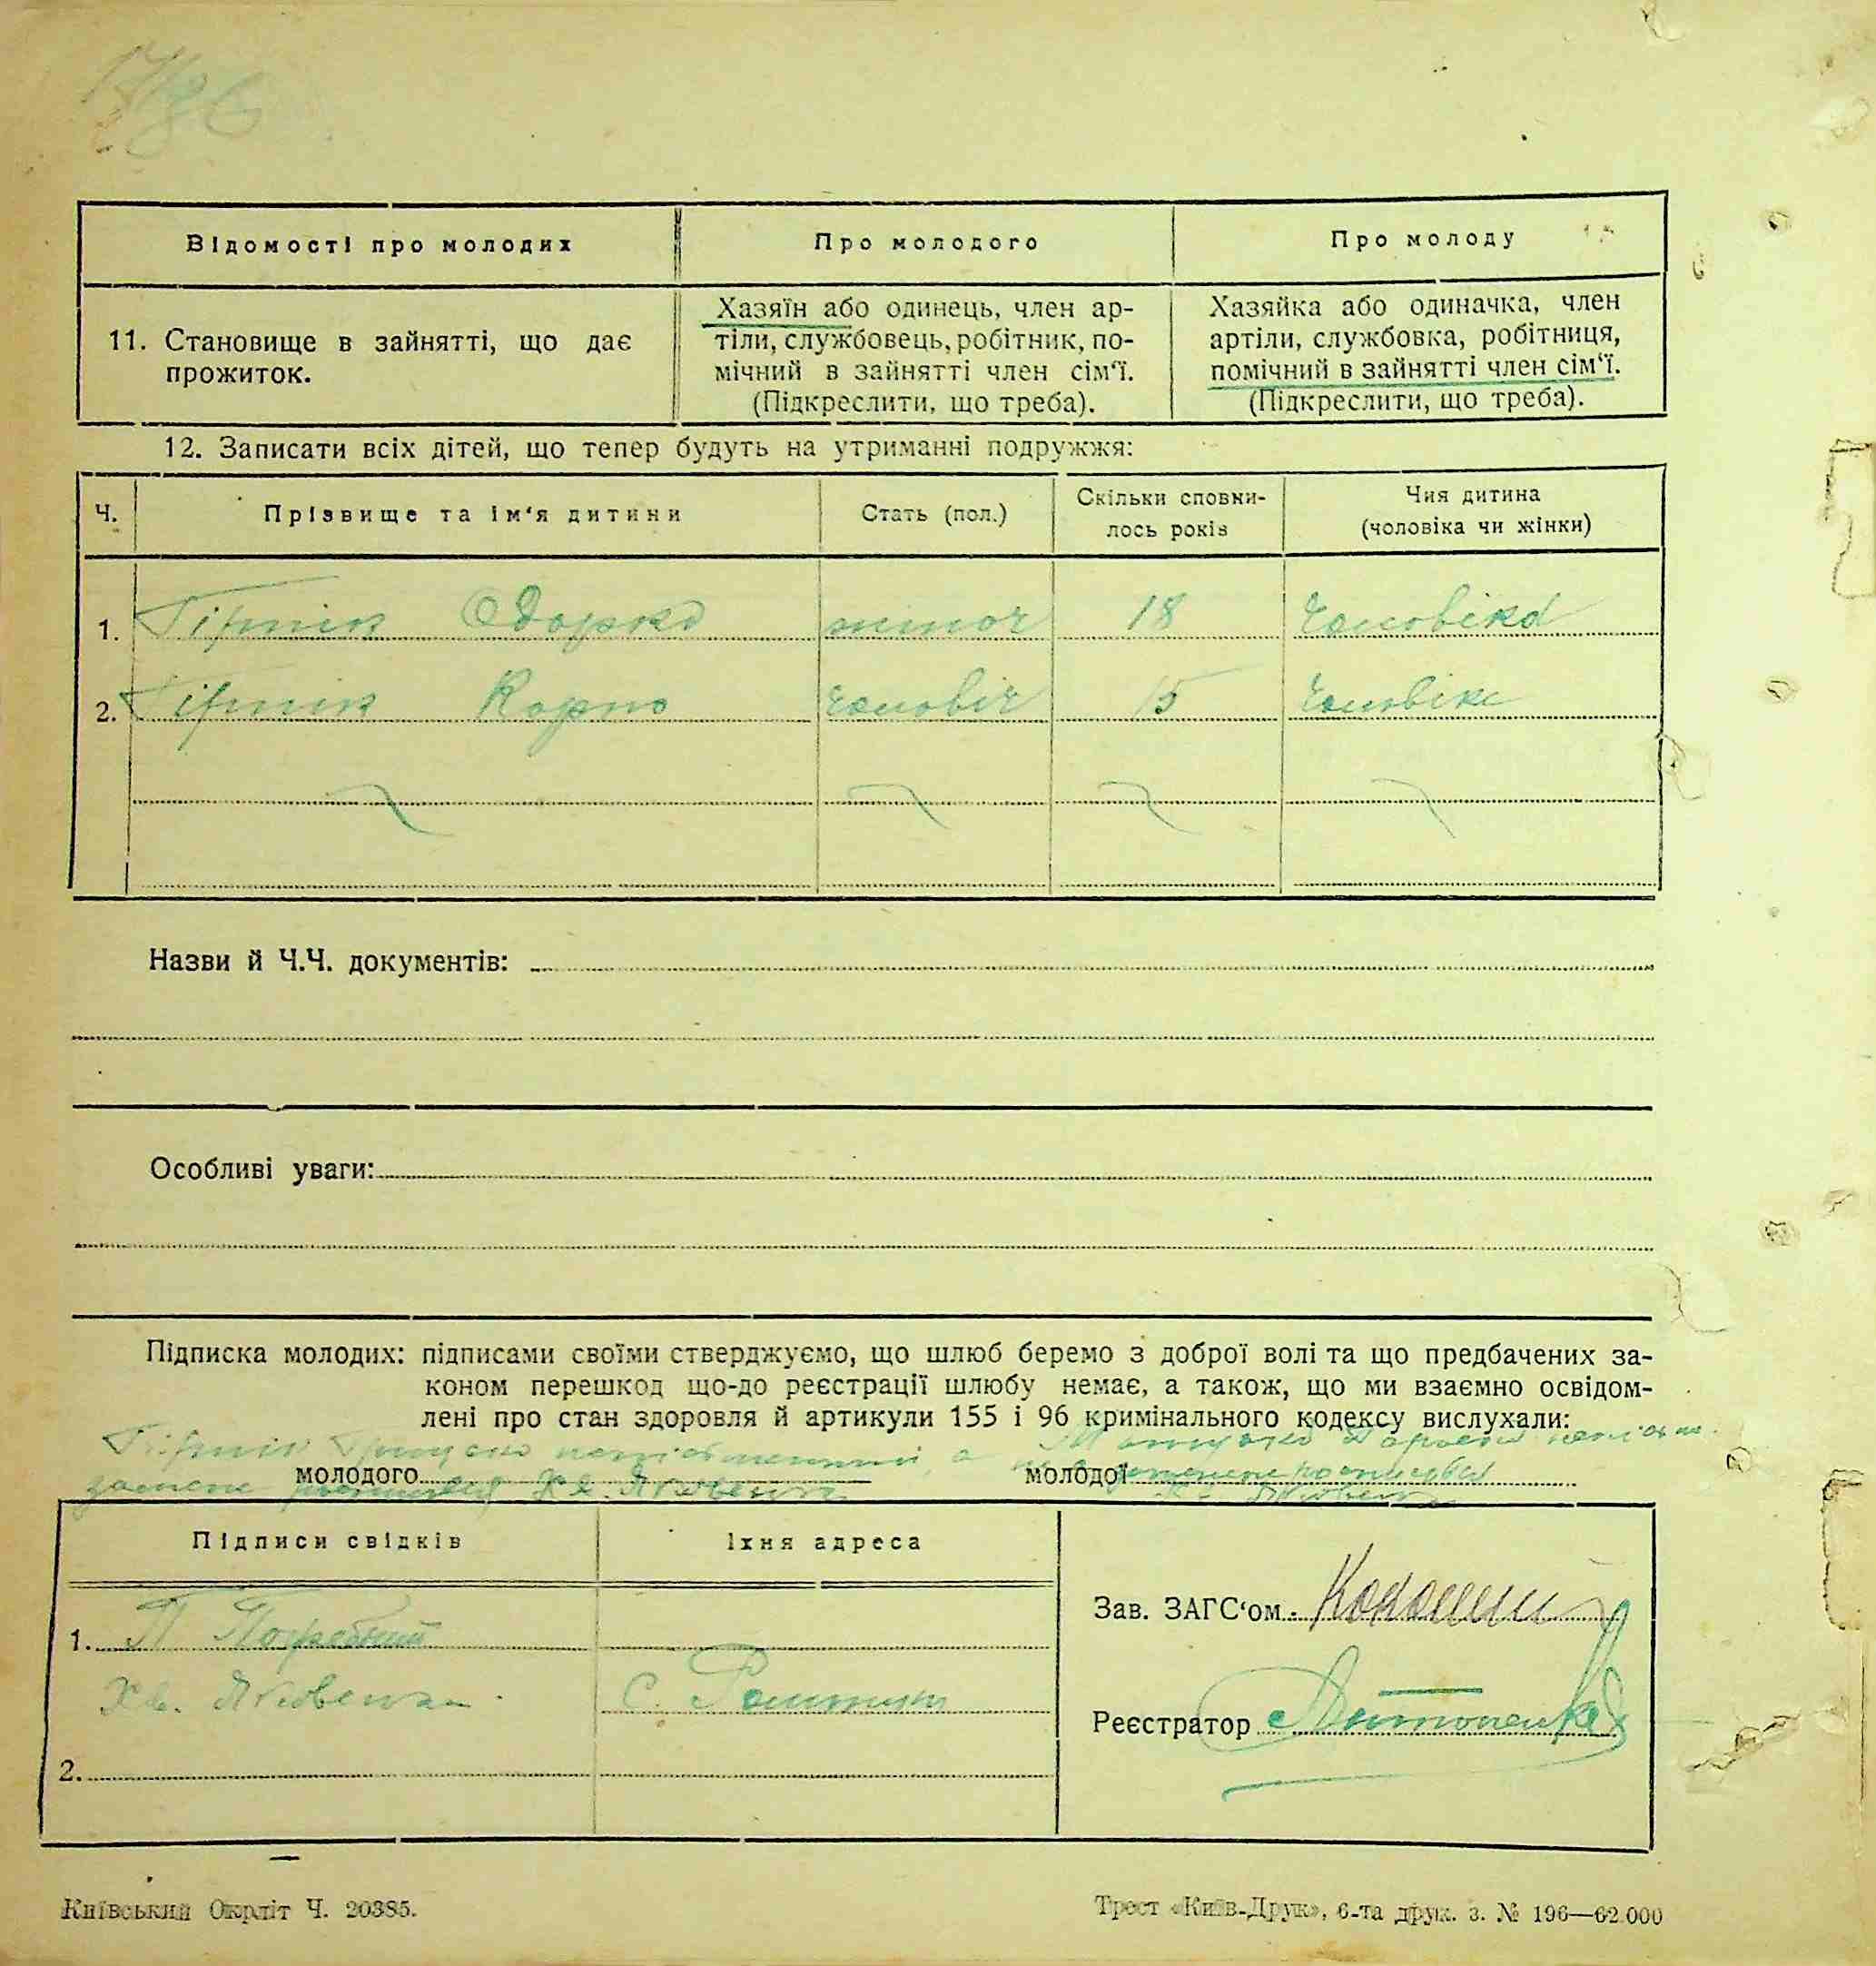 Відомості про молодих
Про молодого
Про молоду
11. Становище в зайнятті, що дає
прожиток.
Хазяїн або одинець, член ар-
тіли, службовець, робітник, по-
мічний в зайнятті член сім‘ї.
(Підкреслити, що треба).
Хазяйка або одиначка, член
артіли, службовка, робітниця,
помічний в зайнятті член сім‘ї.
(Підкреслити, що треба).
12. Записати всіх дітей, що тепер будуть на утриманні подружжя:
Ч.
Прізвище та ім‘я дитини
Стать (пол.)
Скільки сповни-
лось років
Чия дитина
(чоловіка чи жінки)
1. Одарка 18 Чоловіка
2. Карпо чоловіч 15 Чоловіка
Назви й Ч.Ч. документів:
Особливі уваги:
Підписка молодих: підписами своїми стверджуємо, що шлюб беремо з доброї волі та що предбачених за-
коном перешкод що-до реєстрації шлюбу немає, а також, що ми взаємно освідом-
лені про стан здоровля й артикули 155 і 96 кримінального кодексу вислухали:
молодого Хв. Яковенко
молодої
Підписи свідків
Їхня адреса
1. П
Хв. Яковенко
С.
2.
Зав. ЗАГС‘ом
Реєстратор Антоненко
Київський Окрліт Ч. 20385.
Трест «Київ-Друк», 6-та друк. з. № 196—62.000